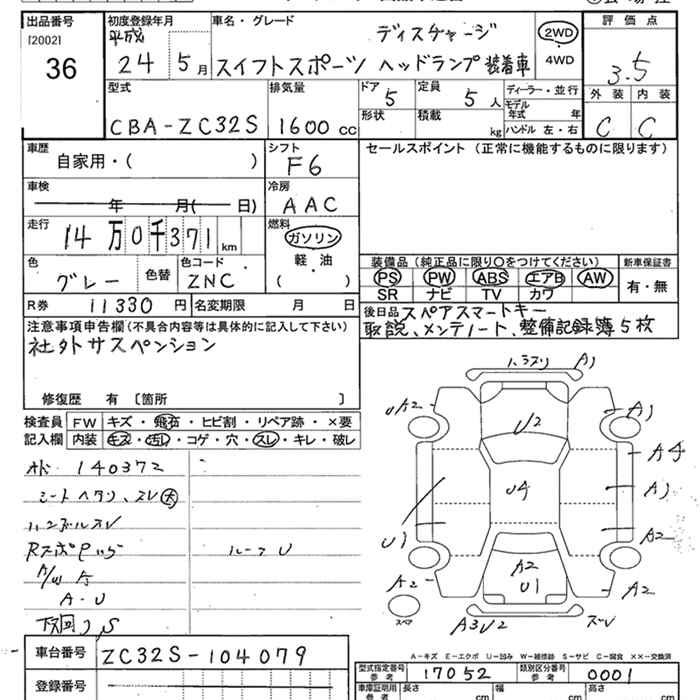 出品番号 初度登録年月 車名・グレード 評価点
[2002] 平成 ディスチャージ 2WD
36 24 5月 スイフトスポーツ ヘッドランプ装着車 ・ 4WD 3.5
型式 排気量 ドア 定員 ディーラー・並行 外装 内装
CBA-ZC32S 1600 cc 5 5人 モデル年式 年
形状 積載 kg ハンドル 左・右 C C
車歴 シフト セールスポイント (正常に機能するものに限ります)
自家用・( ) F6
車検 冷房
年 月( 日) AAC
走行 燃料
14万0千371 km ガソリン
軽・油
( )
色 色替 色コード 装備品 (純正品に限り○をつけてください) 新車保証書
グレー ZNC PS PW ABS エアB AW 有・無
SR ナビ TV カワ
R券 11330 円 名変期限 月 日 後日品 スペアスマートキー
取説、メンテノート、整備記録簿5枚
注意事項申告欄 (不具合内容等は具体的に記入して下さい)
社外サスペンション
修復歴 有 〔箇所 〕
検査員 FW キズ・飛石・ヒビ割・リペア跡・×要
記入欄 内装 キズ・汚れ・コゲ・穴・スレ・キレ・破レ
140372
シートヘタリ、スレ大
ハンドルスレ
ルーフU
A/W
A-U
A1
UA2 A1
U2
A4
U4 A1
U1 A2
A2 A2 A2
U1
スペア A3U2 ズレ
A-キズ E-エクボ U-凹み W-補修跡 S-サビ C-腐食 ××-交換済
車台番号 ZC32S-104079
型式指定番号 17052 類別区分番号 0001
参考 参考
登録番号 車庫証明用 長さ 幅 高さ
参考 cm cm cm